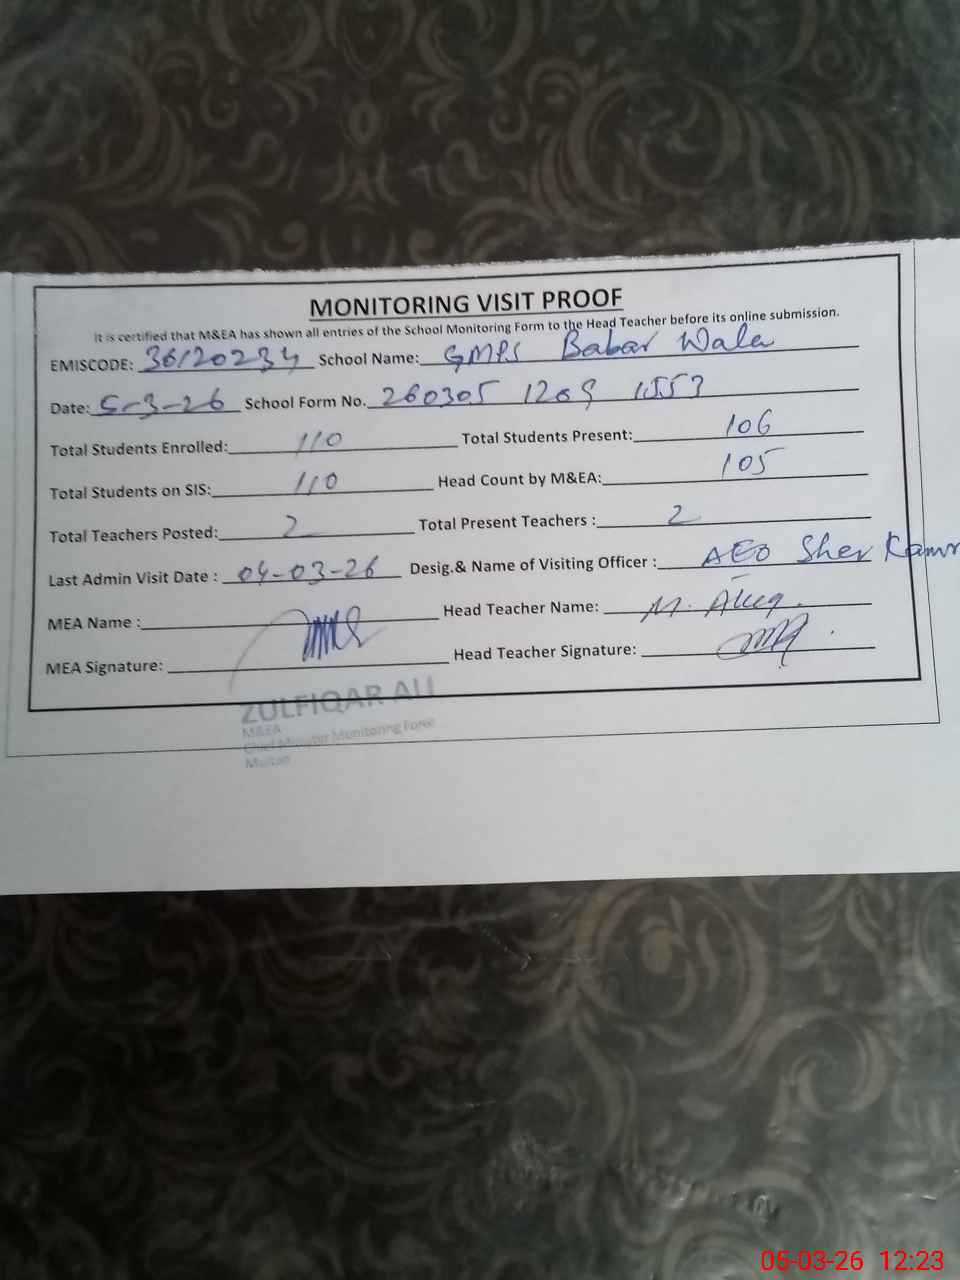 MONITORING VISIT PROOF
It is certified that M&EA has shown all entries of the School Monitoring Form to the Head Teacher before its online submission.
EMISCODE: 36120234 School Name: GMPS Babar Wala
Date: 5-3-26 School Form No. 260305 1209 1553
Total Students Enrolled: 110 Total Students Present: 106
Total Students on SIS: 110 Head Count by M&EA: 105
Total Teachers Posted: 2 Total Present Teachers : 2
Last Admin Visit Date : 04-03-26 Desig.& Name of Visiting Officer : AEO Sher
MEA Name : Head Teacher Name: M.
MEA Signature: Head Teacher Signature:
ZULFIQAR ALI
M&EA
Chief Minister Monitoring Force
Multan
05-03-26 12:23